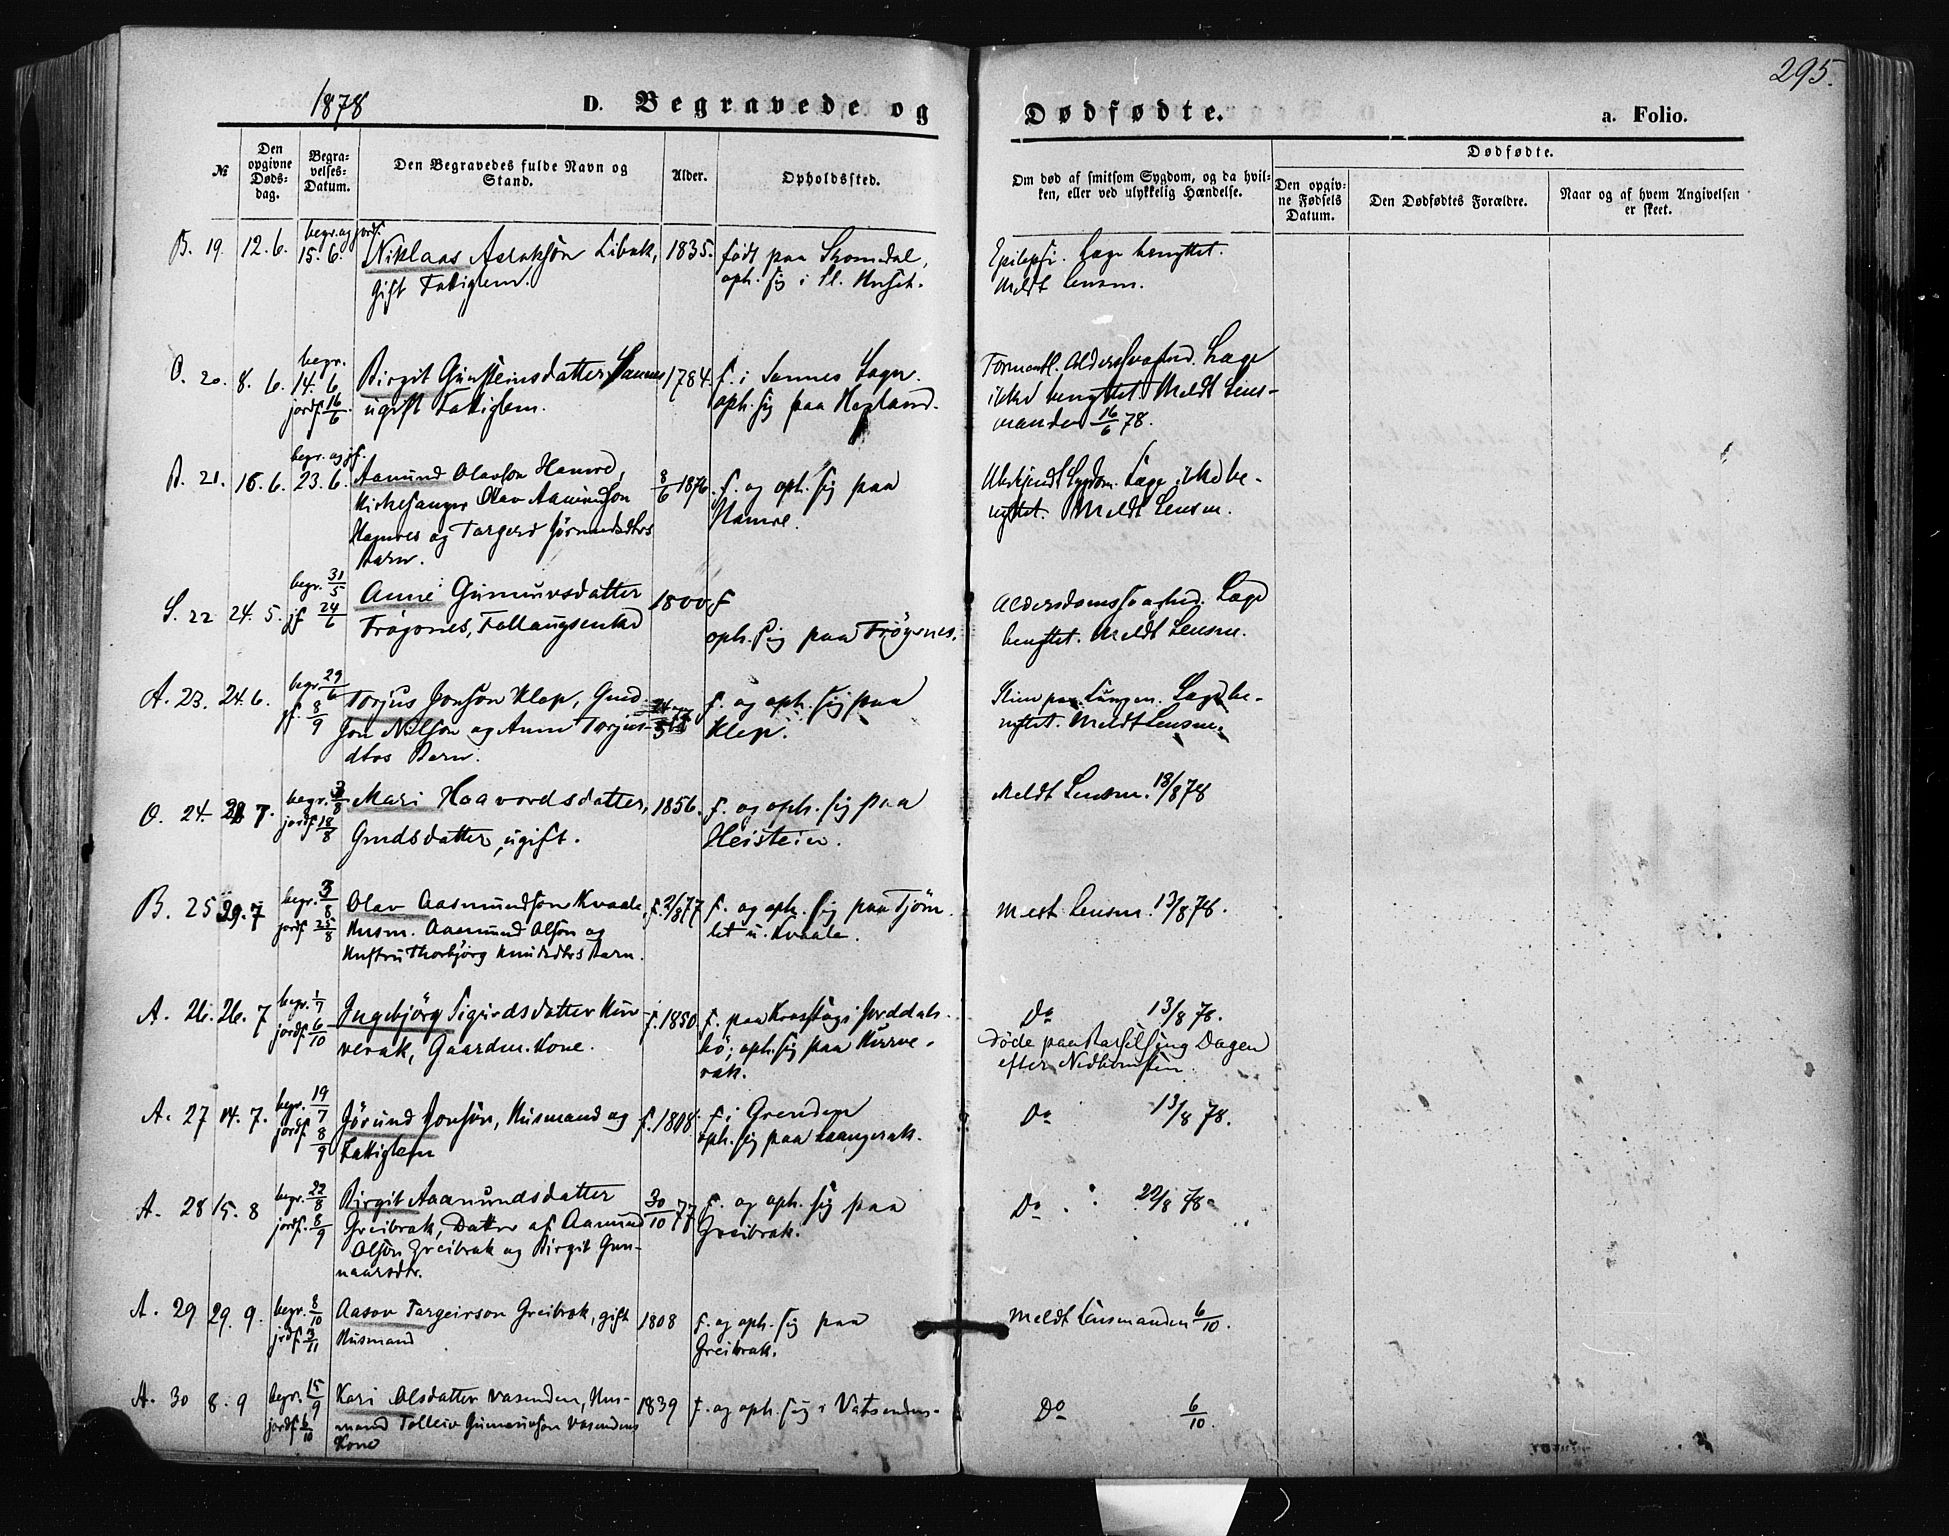 295.
1878
D. Begravede og Dødfødte.
a. Folio.
№
Den opgivne Døds-dag.
Begra-velses-Datum.
Den Begravedes fulde Navn og Stand.
Alder.
Opholdssted.
Om død af smitsom Sygdom, og da hvil-ken, eller ved ulykkelig Hændelse.
Dødfødte.
Den opgiv-ne Fødsels Datum.
Den Dødfødtes Forældre.
Naar og af hvem Angivelsen er skeet.
B. 19. 12. 6. begr. og jordf. 15. 6. Niklaas Aslaksön Libak, 1835. født paa Skomdal, Epilepsi. Læge benyttet.
gift Fattiglem. oph. sig i Meldt Lensm.
O. 20. 8. 6. begr. 14. 6 Birgit Gunsteinsdatter Sannes 1784. f. i Sannes Sogn. Læge
jordf. 16/6 ugift Fattiglem. oph. sig paa ikke benyttet. Meldt Lens-
manden 16/6 78.
B. 21. 15. 6. begr. og jf. 23. 6. Aamund Olavson Hamre, 8/6 1876. f. og oph. sig paa Ubekjendt Sygdom. Læge ikke be-
Kirkesanger Olav Aamundson Hamre. nyttet. Meldt Lensm.
Hamres og Targerd Jörundsdtrs
Barn.
S. 22 24. 5. begr. 31/5 Anne Gunnuvsdatter 1800. f Læge
jf 24/6 Trögsnes, oph. sig paa Trögsnes. benyttet. Meldt Lensm.
A. 23. 24. 6. begr. 29/6 Torjus Jonson Klep, Gmd f. og oph. sig paa Læge be-
jf. 8/9 Jon Nilson og Anne Torjus- Klep. nyttet. Meldt Lensm.
dtrs Barn.
O. 24. 7. begr. 3/8 Mari Haavordsdatter, 1856. f. og oph. sig paa Meldt Lensm. 18/8 78
jordf. 18/8 Gmdsdatter, ugift. Heistein.
B. 25 29. 7 begr. 3/8 Olav Aasmundson Kvaale, f. 2/8 77 f. og oph. sig paa Tjörn Meldt Lensm. 13/8 78.
jordf. 25/8 Husm. Aasmund Olson og u. Kvaale.
Hustru Thorbjörg Knudsdtrs Barn.
A. 26. 26. 7 begr. 1/7 Ingebjörg Sigurdsdatter Kur f. 1850. f. paa Do 13/8 78.
jordf. 6/10 verak, Gaardm. Kone. bö; oph. sig paa Kurve- døde paa Barselseng Dagen
rak. efter Nedkomsten
A. 27 14. 7. begr. 19/7 Jörund Jonson, Husmand og f. 1808. f. i Grenden Do 13/8 78.
jordf. 8/9 Fattiglem oph. sig paa Laangerak.
A. 28 15. 8 begr. 22/8 Birgit Aamundsdatter 30/10 77 f. og oph. sig paa Do 22/8 78.
jordf. 8/9 Greibrok, Datter af Aamund Greibrok.
Olson Greibrok og Birgit Gun-
naarsdtr.
A. 29 29. 9. begr. 8/10 Aasov Targeirson Greibrok, gift 1808 f. og oph. sig paa Meldt Lensmanden 6/10.
jordf 3/11 Husmand Greibrok.
A. 30 8. 9 begr. 15/9 Kari Olsdatter Vasenden, Hus- 1839 f. og oph. sig i Vatsenden. Do 6/10.
jordf. 6/10 mand Tolleiv Gunnuvson Vasendens
Kone